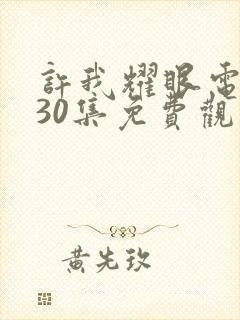 許我耀眼電
30集免費觀
黃先玫